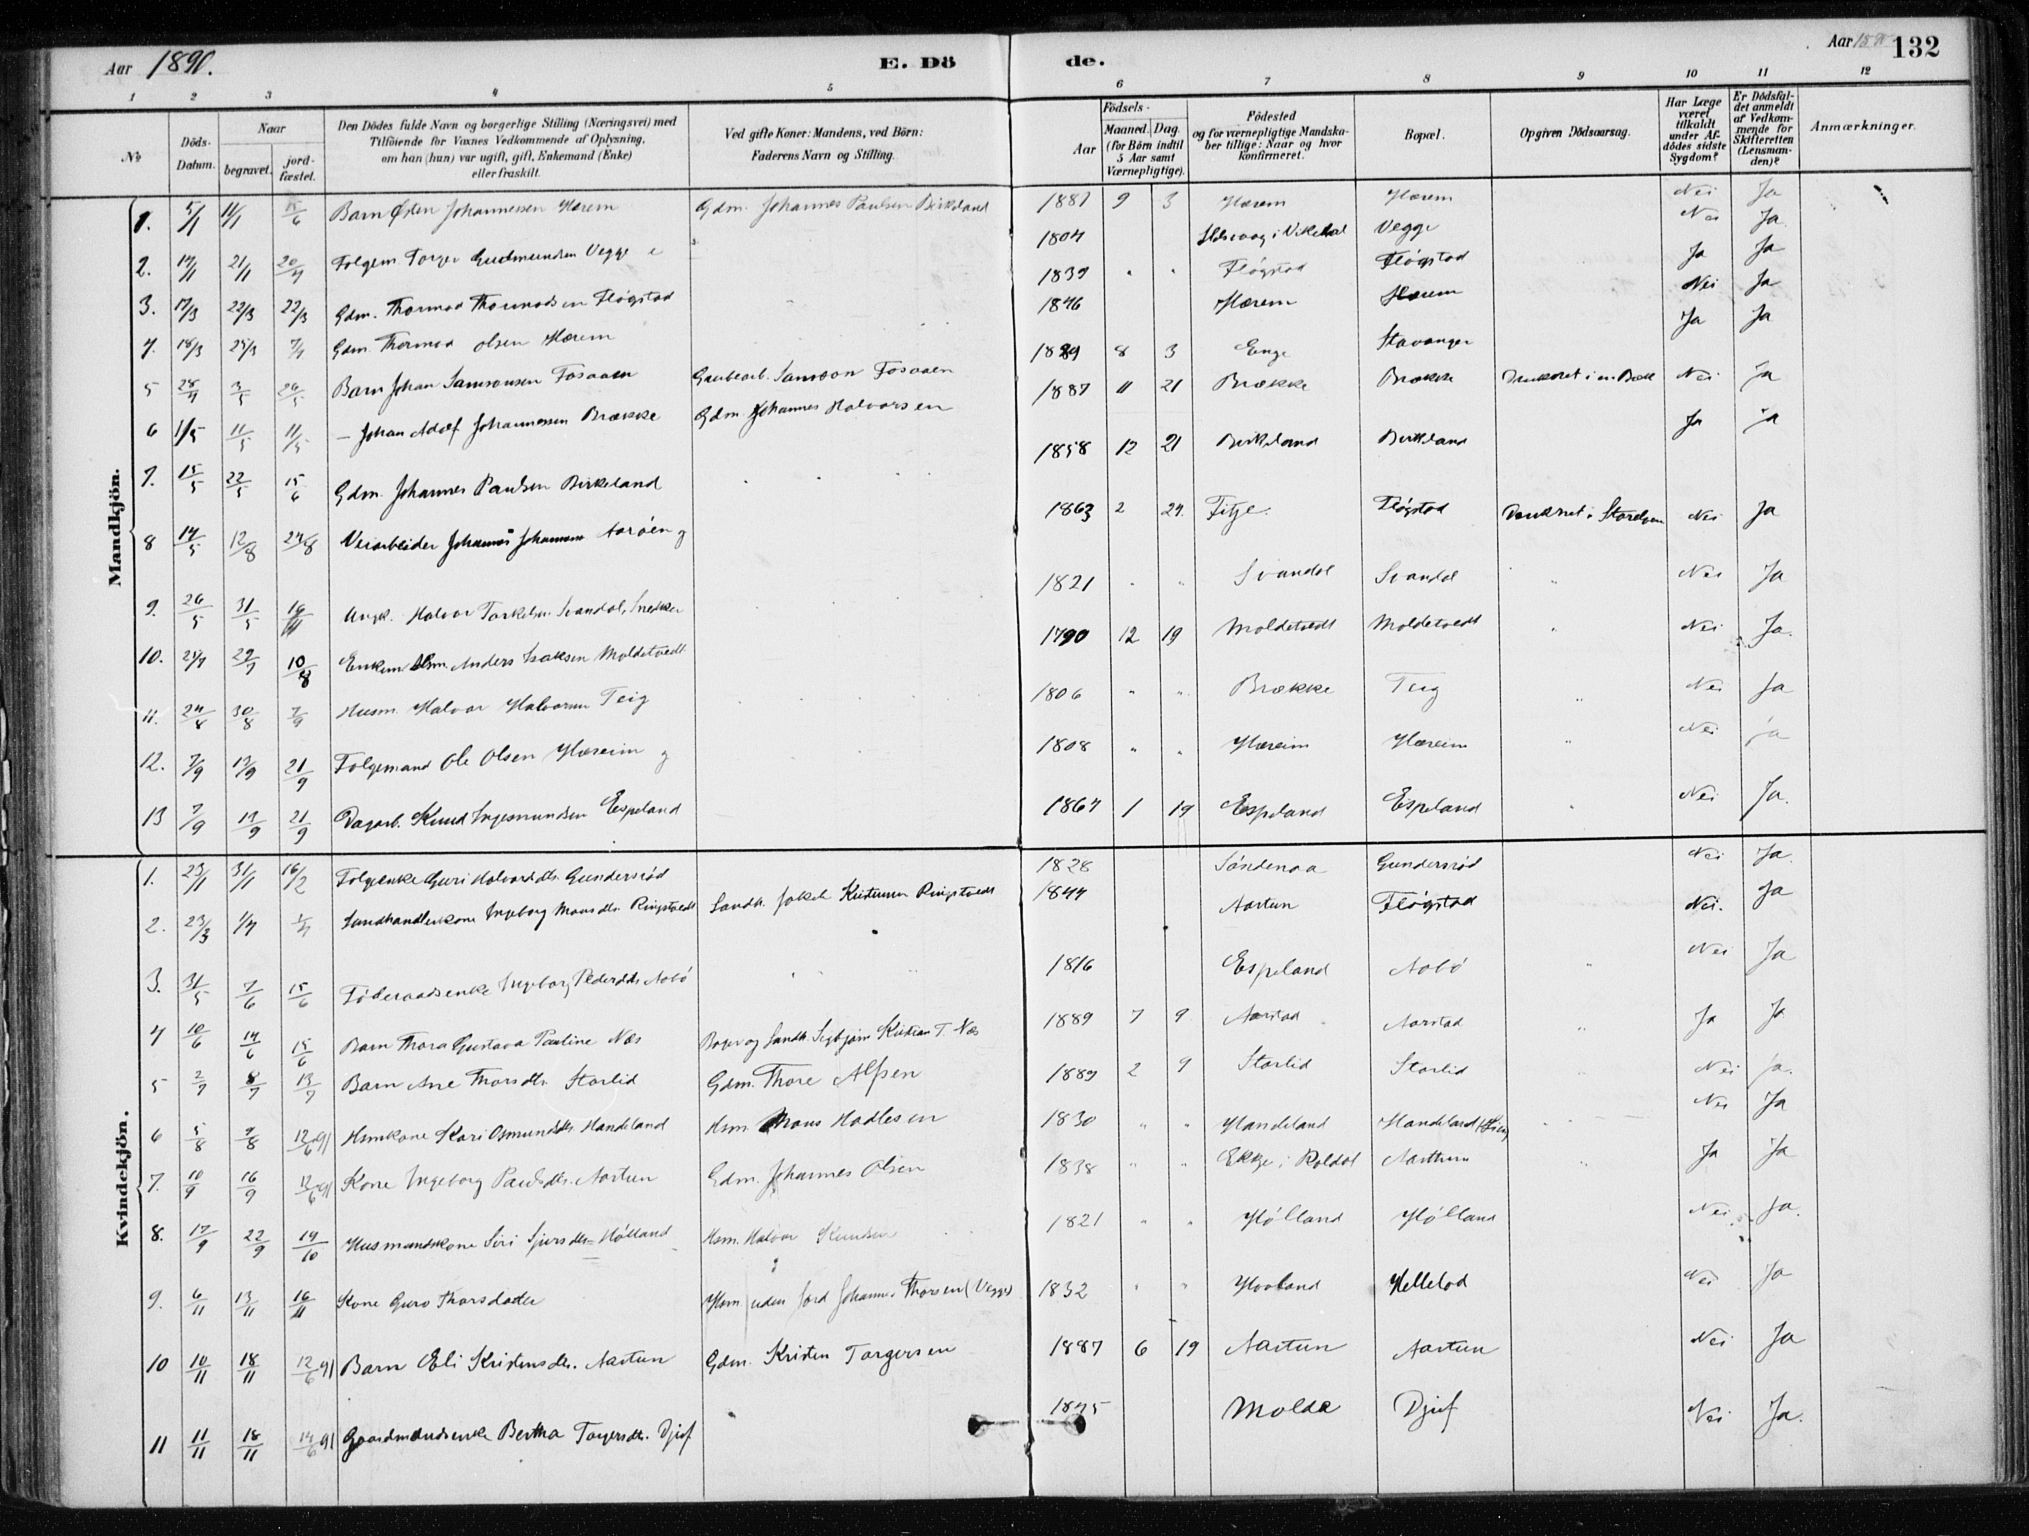 Aar 1890.
E. Dö
de.
Aar 1890
132
1 2 3 4 5 6 7 8 9 10 11 12
No
Döds-Datum.
Naar
begravet.
jordfæstet.
Den Dödes fulde Navn og borgerlige Stilling (Næringsvei) med
Tilföiende for Voxnes Vedkommende af Oplysning,
om han (hun) var ugift, gift, Enkemand (Enke)
eller fraskilt.
Ved gifte Koner: Mandens, ved Börn:
Faderens Navn og Stilling.
Födsels-
Aar
Maaned. Dag.
(for Börn indtil 5 Aar samt Værnepligtige).
Födested
og for værnepligtige Mandskaber tillige: Naar og hvor konfirmeret.
Bopæl.
Opgiven Dödsaarsag.
Har Læge været tilkaldt under Afdödes sidste Sygdom?
Er Dödsfaldet anmeldt af Vedkommende for Skifteretten (Lensmanden)?
Anmærkninger.
Mandkjön.
1. 5/1 11/1 15/6 Barn Østen Johannessen Hærem Gdm. Johannes Paulsen Birkeland 1881 9 3 Hærem Hærem Nei Ja
2. 14/1 21/1 20/4 Folgem. Torger Gudmundsen Vegge 1804 i Vikedal Vegge Nei Ja
3. 17/3 22/3 22/3 Gdm. Thormod Thormodsen Fløgstad 1839 " " Fløgstad Fløgstad Ja Ja
4. 18/3 25/3 7/4 Gdm. Thormod Olsen Hærem 1846 Hærem Hærem Nei Ja
5 28/4 3/5 26/5 Barn Johan Samsonsen Fosaaen Samson Fosaaen 1889 8 3 Enge Stavanger Ja Ja
6 1/5 11/5 11/5 – Johan Adolf Johannessen Brække Gdm. Johannes Halvorsen 1887 11 21 Brække Brække Druknet i en Bæk Nei Ja
7. 15/5 22/5 15/6 Gdm. Johannes Paulsen Birkeland 1858 12 21 Birkeland Birkeland Ja Ja
8 14/5 12/8 24/8 Veiarbeider Johannes Johannessen Aarøen g 1863 2 24. Fitje. Fløgstad Druknet i Storelven Nei Ja
9. 26/5 31/5 Ungk. Halvor Torkelsen Svandal, Snedker 1821 " " Svandal Svandal " Nei Ja
10. 29/7 10/8 Enkem. Anders Isaksen Moldetvedt 1790 12 19 Moldetvedt Moldetvedt " Nei Ja.
11. 24/8 30/8 7/9 Husm. Halvor Halvorsen Teig 1806 " " Brække Teig " Nei Ja
12. 7/9 13/9 21/9 Folgemand Ole Olsen Hæreim g 1808 " " Hæreim Hæreim " Nei Ja
13 7/9 19/9 21/9 Dagarb. Knud Ingemundsen Espeland 1867 1 19 Espeland Espeland " Nei Ja.
Kvindekjön.
1. 23/1 31/1 16/2 Folgenke Guri Halvorsdtr. Gundersrød 1828 Søndenaa Gundersrød Nei Ja.
2. 23/3 1/4 1/4 Landhandlerkone Ingeborg Monsdtr. Ringstvedt Landh. Jakob Kristensen Ringstvedt 1844 Aartun Fløgstad Nei. Ja
3. 31/5 7/6 15/6 Føderaadsenke Ingeborg Pedersdtr Aabø " " 1816 Espeland Aabø " Nei Ja
4 10/6 14/6 15/6 Barn Thora Gustava Pauline Næs Landh. Kristian T. Næs 1889 7 9 Aarstad Aarstad " Ja Ja
5 2/7 8/7 13/7 Barn Ane Thorsdtr. Storlid Gdm. Thore Alfsen 1889 2 9 Storlid Storlid Nei Ja.
6 5/8 9/8 12/6 91 Hsmkone Kari Osmundsdtr Handeland Hsm. Mons Hadlesen 1830 " " Handeland Handeland Nei Ja
7. 10/9 16/9 12/6 91 Kone Ingeborg Paulsdtr. Aartun Gdm. Johannes Olsen 1838 " " Ekkje i Roldal Aarthun " Ja Ja
8. 17/9 22/9 19/10 Husmandskone Siri Sjursdtr. Hølland Hsm. Halvor Knudsen 1821 " " Hølland Hølland Nei Ja.
9. 6/11 13/11 16/11 Kone Guro Thorsdatter Hsm. uden Jord Johannes Thorsen (Vegge) 1832 " " Hovland Hellelod Nei Ja
10 10/11 18/11 12/6 91 Barn Eli Kristensdtr. Aartun Gdm. Kristen Torgersen 1887 6 19 Aartun Aartun Nei Ja
11 11/11 18/11 14/6 91 Gaardmandsenke Bertha Torgersdtr. Djuf 1845 Molde Djuf Nei Ja.